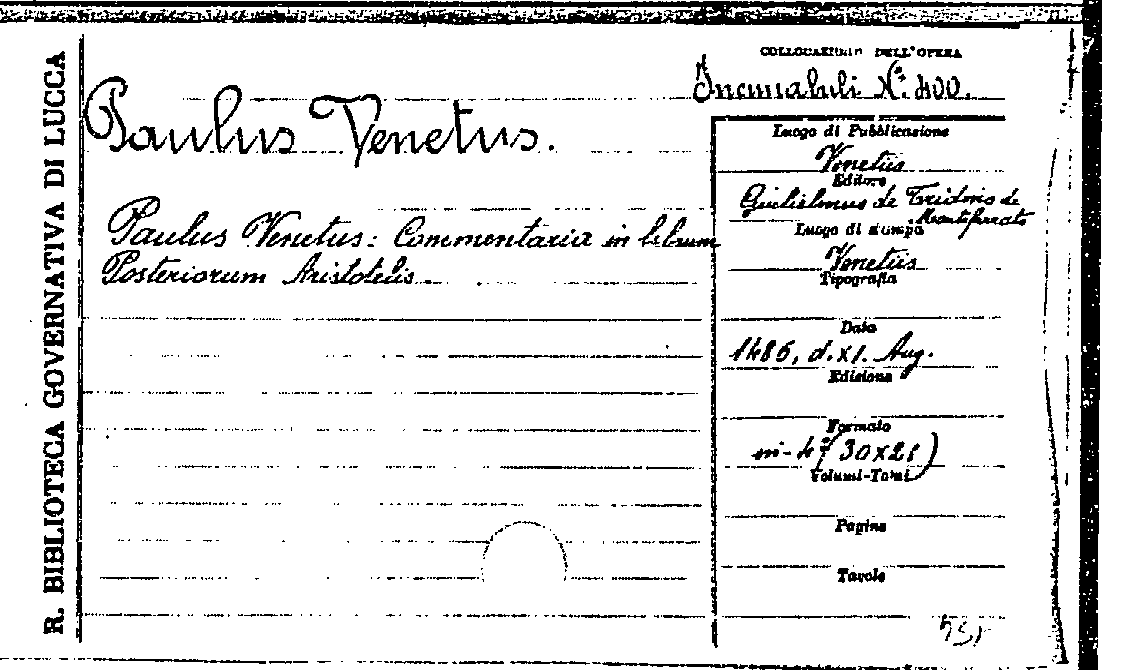 R. BIBLIOTECA GOVERNATIVA DI LUCCA
COLLOCAZIONE DELL'OPERA
Incunabuli N.° 400.
Paulus Venetus.
Paulus Venetus: Commentaria in librum
Posteriorum Aristotelis.
Luogo di Pubblicazione
Venetiis
Editore
Gulielmus de Tridino de
Monteferrato
Luogo di stampa
Venetiis
Tipografia
Data
1486, d. XI. Aug.
Edizione
Formato
in-4° (30x21)
Volumi-Tomi
Pagine
Tavole